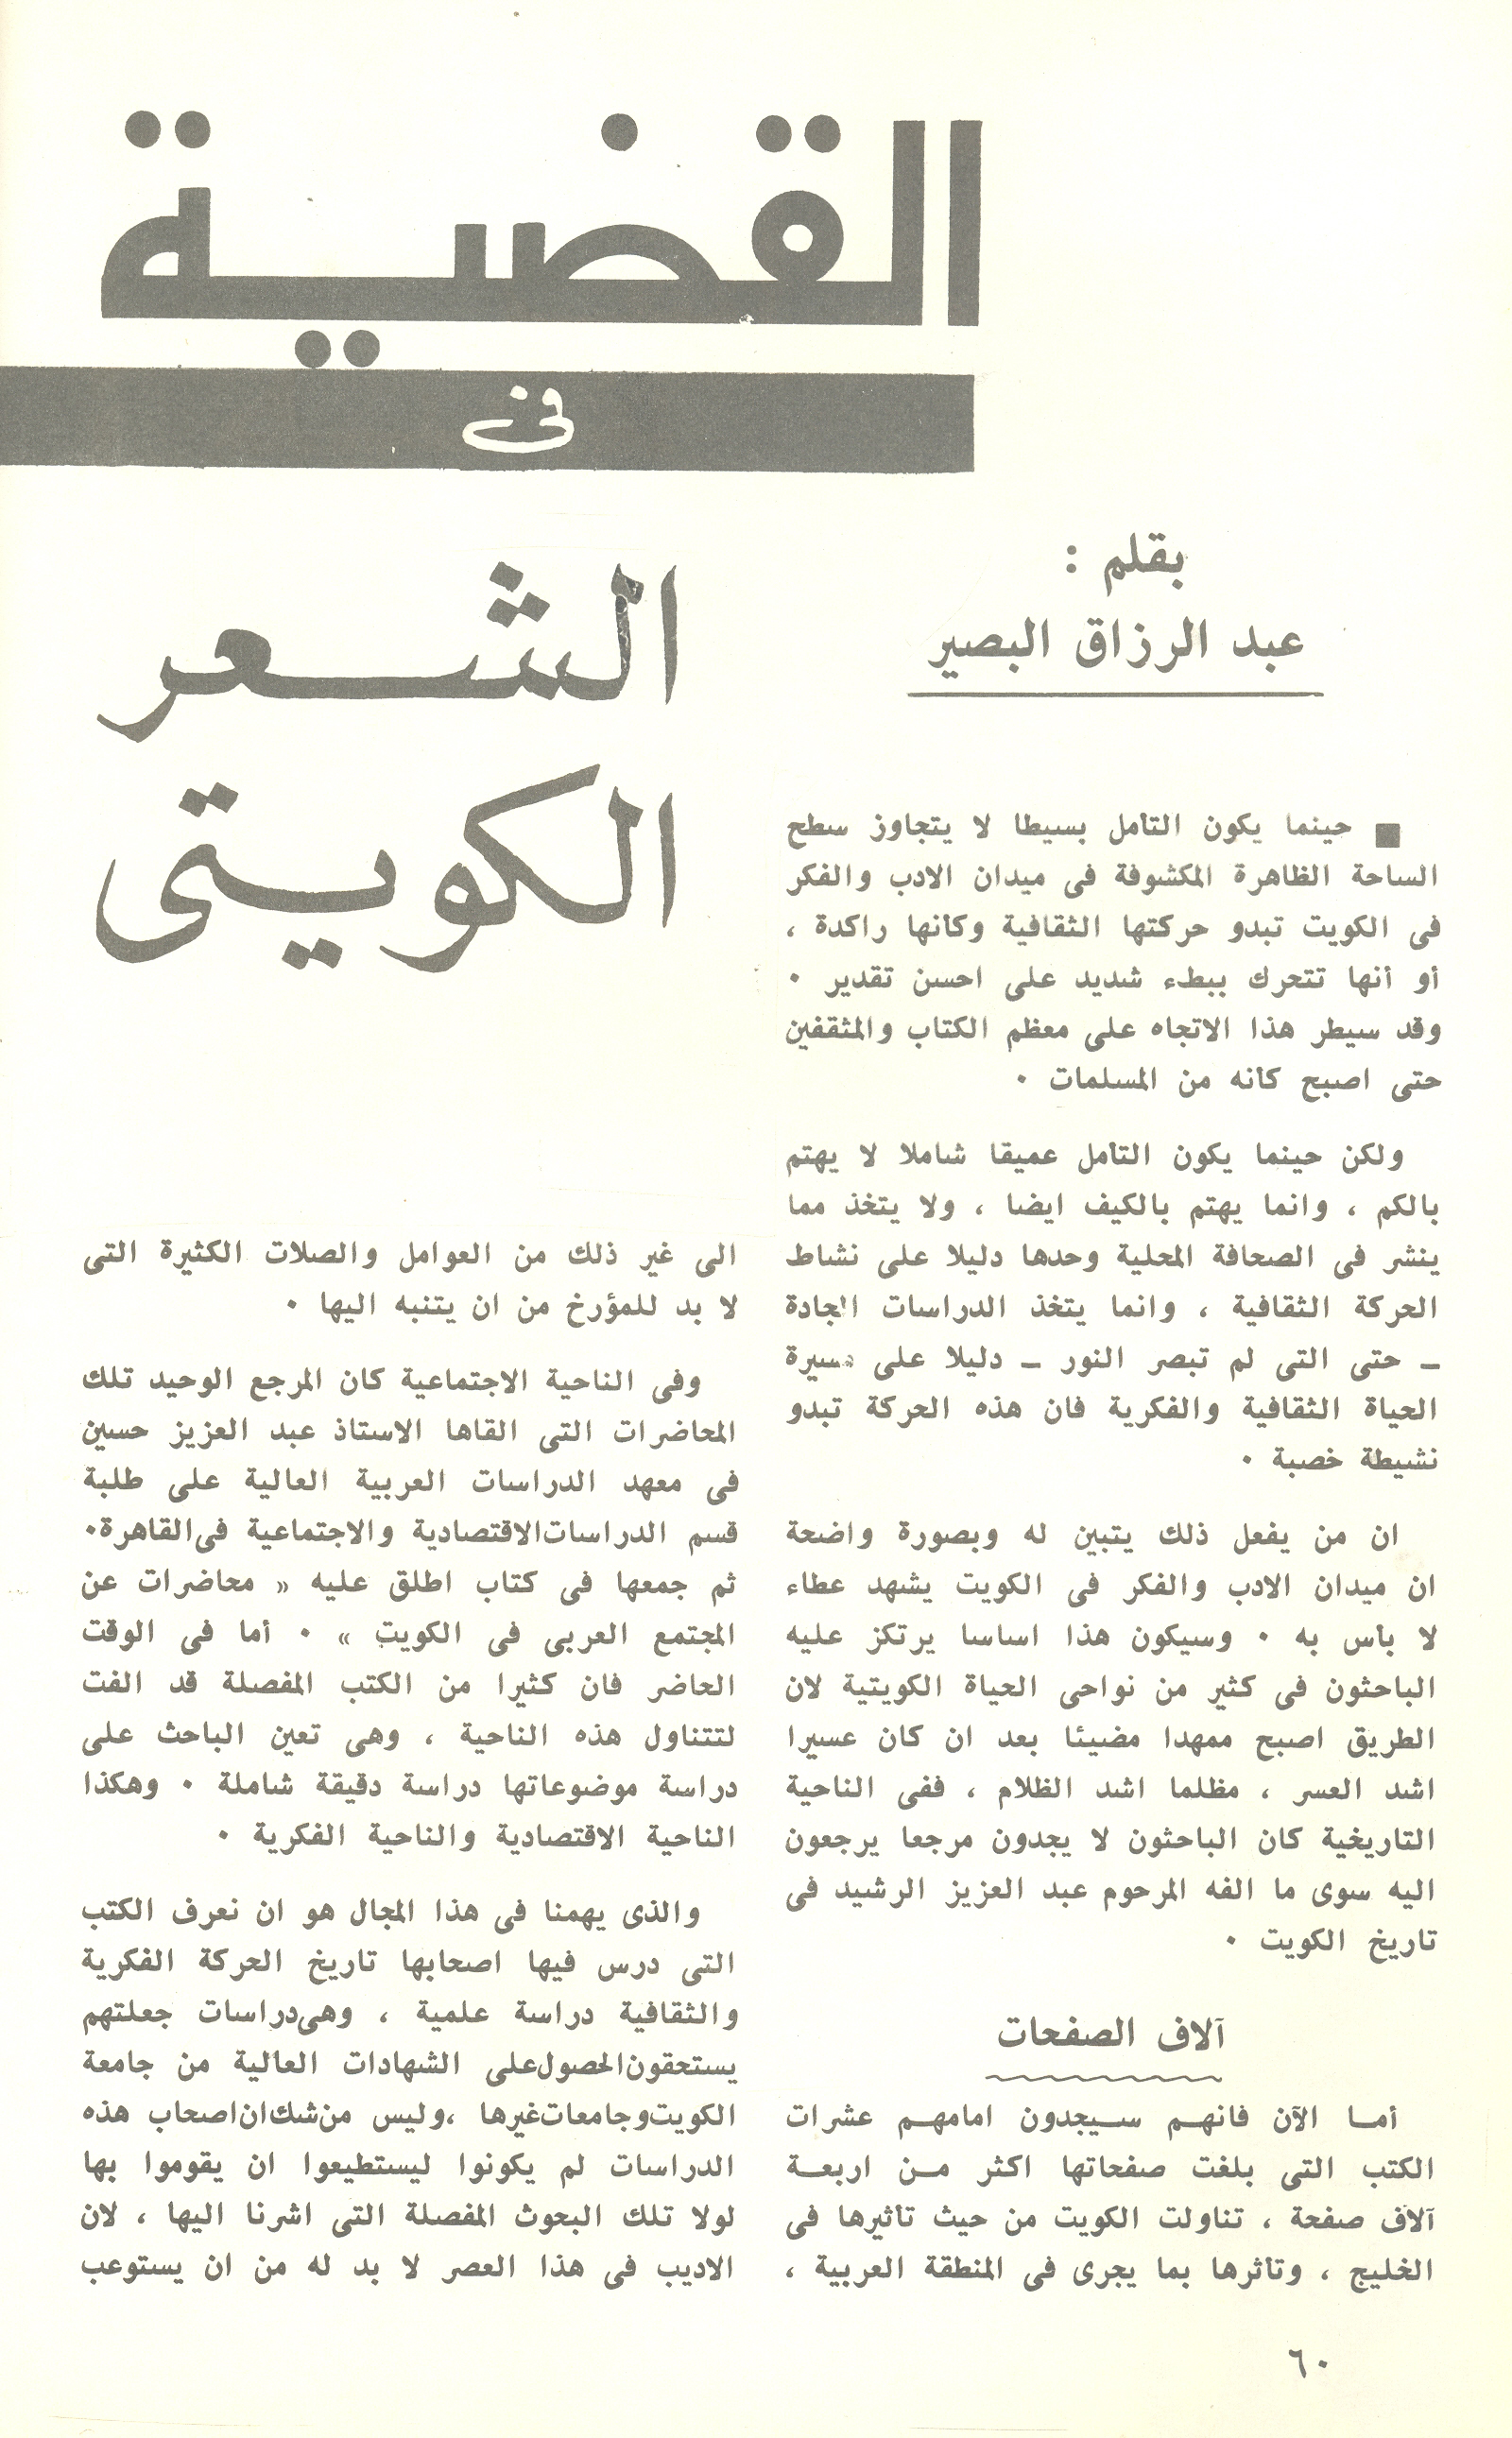 القضية
فى
الشعر
الكويتى
بقلم :
عبد الرزاق البصير
■ حينما يكون التأمل بسيطا لا يتجاوز سطح
الساحة الظاهرة المكشوفة فى ميدان الادب والفكر
فى الكويت تبدو حركتها الثقافية وكأنها راكدة ،
أو أنها تتحرك ببطء شديد على احسن تقدير ٠
وقد سيطر هذا الاتجاه على معظم الكتاب والمثقفين
حتى اصبح كأنه من المسلمات ٠
ولكن حينما يكون التأمل عميقا شاملا لا يهتم
بالكم ، وانما يهتم بالكيف ايضا ، ولا يتخذ مما
ينشر فى الصحافة المحلية وحدها دليلا على نشاط
الحركة الثقافية ، وانما يتخذ الدراسات الجادة
ـ حتى التى لم تبصر النور ـ دليلا على مسيرة
الحياة الثقافية والفكرية فان هذه الحركة تبدو
نشيطة خصبة ٠
ان من يفعل ذلك يتبين له وبصورة واضحة
ان ميدان الادب والفكر فى الكويت يشهد عطاء
لا بأس به ٠ وسيكون هذا اساسا يرتكز عليه
الباحثون فى كثير من نواحى الحياة الكويتية لان
الطريق اصبح ممهدا مضيئا بعد ان كان عسيرا
اشد العسر ، مظلما اشد الظلام ، ففى الناحية
التاريخية كان الباحثون لا يجدون مرجعا يرجعون
اليه سوى ما الفه المرحوم عبد العزيز الرشيد فى
تاريخ الكويت ٠
آلاف الصفحات
أما الآن فانهم سيجدون امامهم عشرات
الكتب التى بلغت صفحاتها اكثر من اربعة
آلاف صفحة ، تناولت الكويت من حيث تأثيرها فى
الخليج ، وتأثرها بما يجرى فى المنطقة العربية ،
الى غير ذلك من العوامل والصلات الكثيرة التى
لا بد للمؤرخ من ان يتنبه اليها ٠
وفى الناحية الاجتماعية كان المرجع الوحيد تلك
المحاضرات التى القاها الاستاذ عبد العزيز حسين
فى معهد الدراسات العربية العالية على طلبة
قسم الدراسات الاقتصادية والاجتماعية فى القاهرة٠
ثم جمعها فى كتاب اطلق عليه « محاضرات عن
المجتمع العربى فى الكويت » ٠ أما فى الوقت
الحاضر فان كثيرا من الكتب المفصلة قد الفت
لتتناول هذه الناحية ، وهى تعين الباحث على
دراسة موضوعاتها دراسة دقيقة شاملة ٠ وهكذا
الناحية الاقتصادية والناحية الفكرية ٠
والذى يهمنا فى هذا المجال هو ان نعرف الكتب
التى درس فيها اصحابها تاريخ الحركة الفكرية
والثقافية دراسة علمية ، وهى دراسات جعلتهم
يستحقون الحصول على الشهادات العالية من جامعة
الكويت وجامعات غيرها ، وليس من شك ان اصحاب هذه
الدراسات لم يكونوا ليستطيعوا ان يقوموا بها
لولا تلك البحوث المفصلة التى اشرنا اليها ، لان
الاديب فى هذا العصر لا بد له من ان يستوعب
٦٠